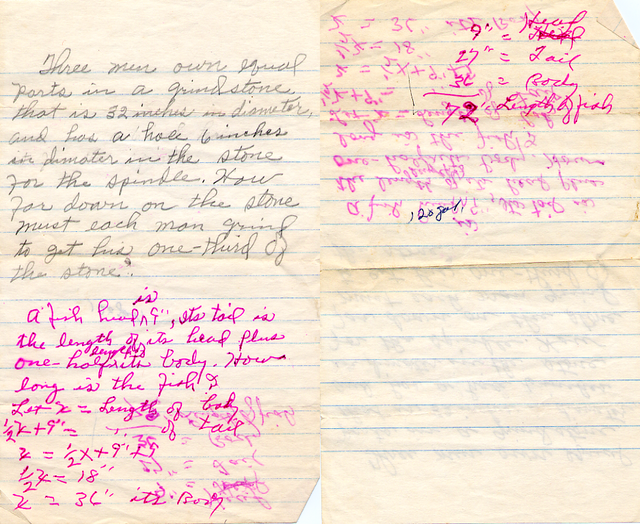 Three men own equal
parts in a grindstone
that is 32 inches in diameter,
and has a hole 6 inches
in dimater in the stone
for the spindle. How
far down on the stone
must each man grind
to get his one-third of
the stone?
is
A fish head ^ 9", its tail is
the length of its head plus
length
one-half its body. How
long is the fish?
Let x = Length of body
½x+9" = " of tail
x = ½x+9"+9
½x = 18"
x = 36" its Body
9" = Head
27" = Tail
36 = Body
72 Length of fish